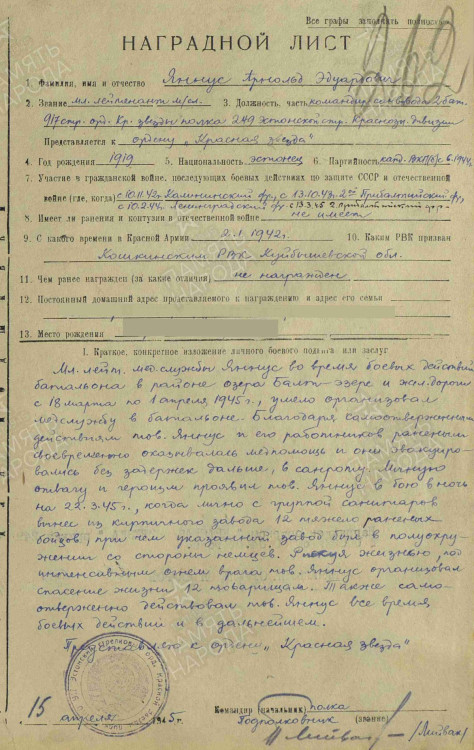 Все графы заполнять полностью
242
НАГРАДНОЙ ЛИСТ
1. Фамилия, имя и отчество Яннус Арнольд Эдуардович
2. Звание мл. лейтенант м/сл. 3. Должность, часть командир санвзвода 2 бат.
917 стр. орд. Кр. звезды полка 249 эстонской стр. Краснозн. дивизии
Представляется к ордену „Красная звезда"
4. Год рождения 1919 5. Национальность эстонец 6. Партийность канд. ВКП(б) с 6.1944г.
7. Участие в гражданской войне, последующих боевых действиях по защите СССР и отечественной
войне (где, когда) с 10.11.42г. Калининский фр., с 13.10.43г. 2ой Прибалтийский фр.,
с 10.2.44г. Ленинградский фр. с 13.3.45 2 Прибалтийский фр.
8. Имеет ли ранения и контузии в отечественной войне не имеет
9. С какого времени в Красной Армии 2.1.1942г. 10. Каким РВК призван
Кошкинским РВК Куйбышевской обл.
11. Чем ранее награжден (за какие отличия) не награжден
12. Постоянный домашний адрес представляемого к награждению и адрес его семьи
13. Место рождения
I. Краткое, конкретное изложение личного боевого подвига или заслуг
Мл. лейт. медслужбы Яннус во время боевых действий
батальона в районе озера Балт-эзере и жел. дороги
с 18 марта по 1 апреля 1945г., умело организовал
медслужбу в батальоне. Благодаря самоотверженным
действиям тов. Яннус и его работников раненым
своевременно оказывалась медпомощь и они эвакуиро-
вались без задержек дальше, в санроту. Личную
отвагу и героизм проявил тов. Яннус в бою в ночь
на 22.3.45г., когда лично с группой санитаров
вынес из кирпичного завода 12 тяжело раненых
бойцов, при чем указанный завод был в полуокру-
жении со стороны немцев. Рискуя жизнью, под
интенсивным огнем врага тов. Яннус организовал
спасение жизни 12 товарищам. Также само-
отверженно действовал тов. Яннус все время
боевых действий и в дальнейшем.
Представляю к ордену „Красная звезда"
Командир (начальник) полка
15 апреля 1945 г.
Подполковник (звание)
(Лийвак)